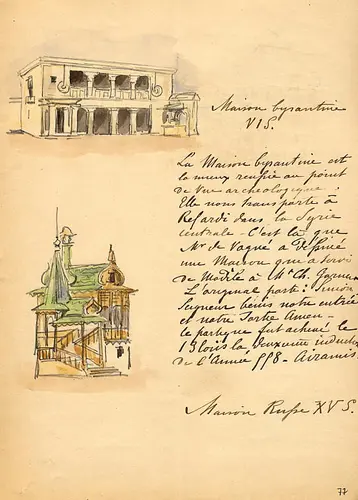 Maison byzantine
VI S.
La Maison byzantine est
la mieux reussie au point
de vue archeologique.
Elle nous transporte à
Refardi dans la Syrie
centrale - C'est là que
Mr de Vogué a dessiné
une Maison qui a servi
de Modèle à Mr Ch. Garnier
L'original porte: Seigneur benis notre entrée
et notre Sortie Amen -
le portique fut achevé le
13 loüs la deuxieme indiction
de l'Année 558 - Airamis
Maison Russe XV S.
77